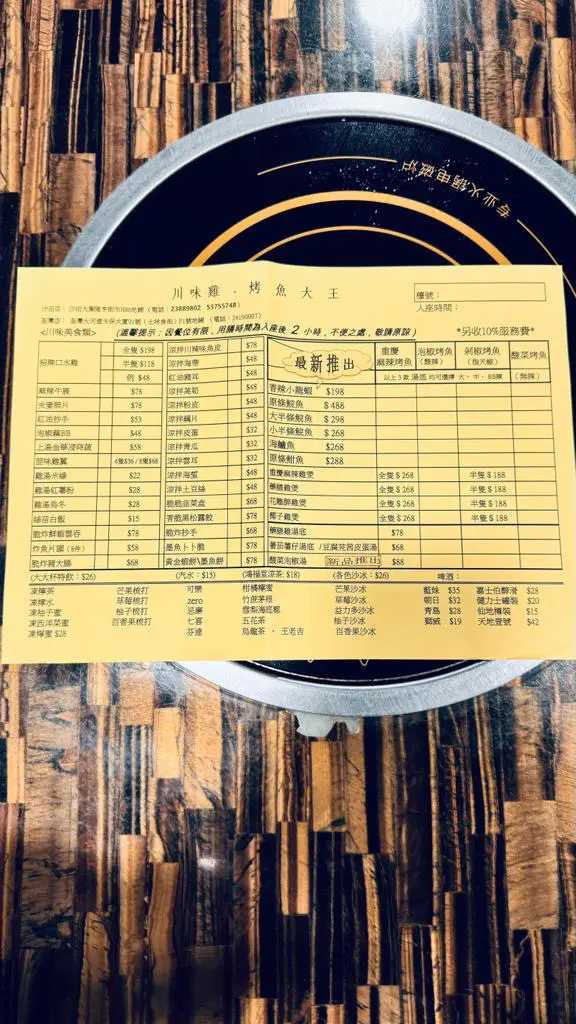 专业火锅电磁炉
川味雞．烤魚大王
檯號：
入座時間：
沙田店： 沙田大圍隆亨街市H86地鋪（電話：23889802 53755748）
荃灣店： 荃灣大河道天保大廈91號（士林食街）F1號地鋪 （電話：24190007）
<川味美食類>
(溫馨提示：因餐位有限，用膳時間為入座後 2 小時，不便之處，敬請原諒）
*另收10%服務費*
招牌口水雞 全隻 $198
半隻 $118
例 $48
麻辣牛展 $78
夫妻肺片 $78
紅油抄手 $53
泡椒藕BB $48
上湯金華浸時蔬 $58
惹味雞翼 4隻$36 / 8隻$68
雞湯米線 $22
雞湯紅薯粉 $28
雞湯烏冬 $28
絲苗白飯 $15
脆炸鮮蝦雲吞 $78
炸魚片頭（8件） $58
脆炸豬大腸 $68
涼拌川辣味魚皮 $78
涼拌海帶 $48
紅油雞耳 $48
涼拌萵筍 $48
涼拌粉皮 $48
涼拌藕片 $48
涼拌皮蛋 $32
涼拌青瓜 $32
涼拌雲耳 $32
涼拌海蜇 $48
涼拌土豆絲 $48
脆脆韭菜盒 $68
香脆黑松露餃 $78
脆炸抄手 $68
墨魚卜卜脆 $78
黃金蝦餅\墨魚餅 $68
最新推出
重慶麻辣烤魚
泡椒烤魚（酸辣）
剁椒烤魚（指天椒）
酸菜烤魚（無辣）
以上 3 款 湯底 均可選擇 大，中，BB辣
香辣小龍蝦 $198
原條鯇魚 $ 488
大半條鯇魚 $ 298
小半條鯇魚 $ 268
海鱸魚 $268
原條魽魚 $288
重慶麻辣雞煲 全隻 $ 268 半隻 $ 188
藥膳雞煲 全隻 $ 268 半隻 $ 188
花雕醉雞煲 全隻 $ 268 半隻 $ 188
椰子雞煲 全隻 $ 268 半隻 $ 188
藥膳雞湯底 $78
番茄薯仔湯底 /豆腐芫茜皮蛋湯 $68
酸菜泡椒湯 新品推出 $88
(大大杯特飲：$26)
(汽水：$15)
(鴻福堂涼茶：$18)
(各色沙冰：$26)
啤酒：
凍檸茶 芒果梳打 可樂 柑橘檸蜜 芒果沙冰 藍妹 $35 嘉士伯醇滑 $28
凍檸水 草莓梳打 zero 竹蔗茅根 草莓沙冰 朝日 $32 健力士罐裝 $20
凍柚子蜜 柚子梳打 忌廉 雪梨海底椰 益力多沙冰 青島 $28 仙地樽裝 $15
凍西洋菜蜜 百香果梳打 七喜 五花茶 柚子沙冰 獅威 $19 天地壹號 $42
凍檸蜜 $28 芬達 烏龍茶．王老吉 百香果沙冰